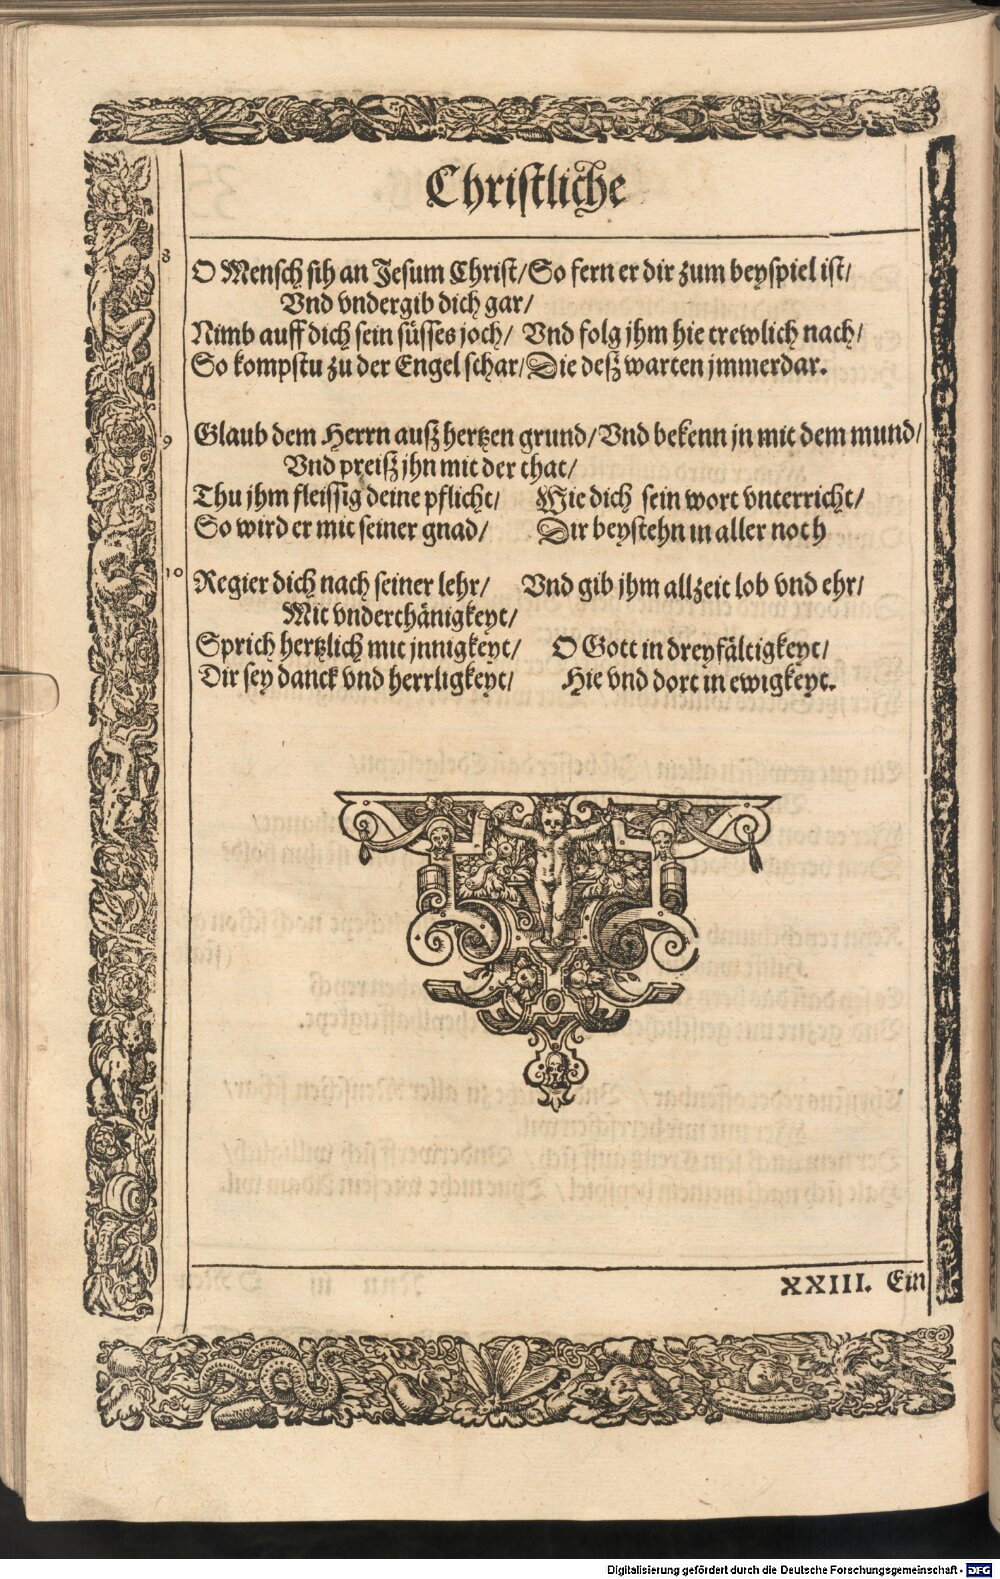 Christliche
8
O Mensch sih an Jesum Christ/ So fern er dir zum beyspiel ist/
Vnd vndergib dich gar/
Nimb auff dich sein süsses joch/ Vnd folg jhm hie trewlich nach/
So kompstu zu der Engel schar/ Die deß warten jmmerdar.
9
Glaub dem Herrn auß hertzen grund/ Vnd bekenn jn mit dem mund/
Vnd preiß jhn mit der that/
Thu jhm fleissig deine pflicht/ Wie dich sein wort vnterricht/
So wird er mit seiner gnad/ Dir beystehn in aller noth
10
Regier dich nach seiner lehr/ Vnd gib jhm allzeit lob vnd ehr/
Mit vnderthänigkeyt/
Sprich hertzlich mit jnnigkeyt/ O Gott in dreyfältigkeyt/
Dir sey danck vnd herrligkeyt/ Hie vnd dort in ewigkeyt.
XXIII. Ein
Digitalisierung gefördert durch die Deutsche Forschungsgemeinschaft - DFG